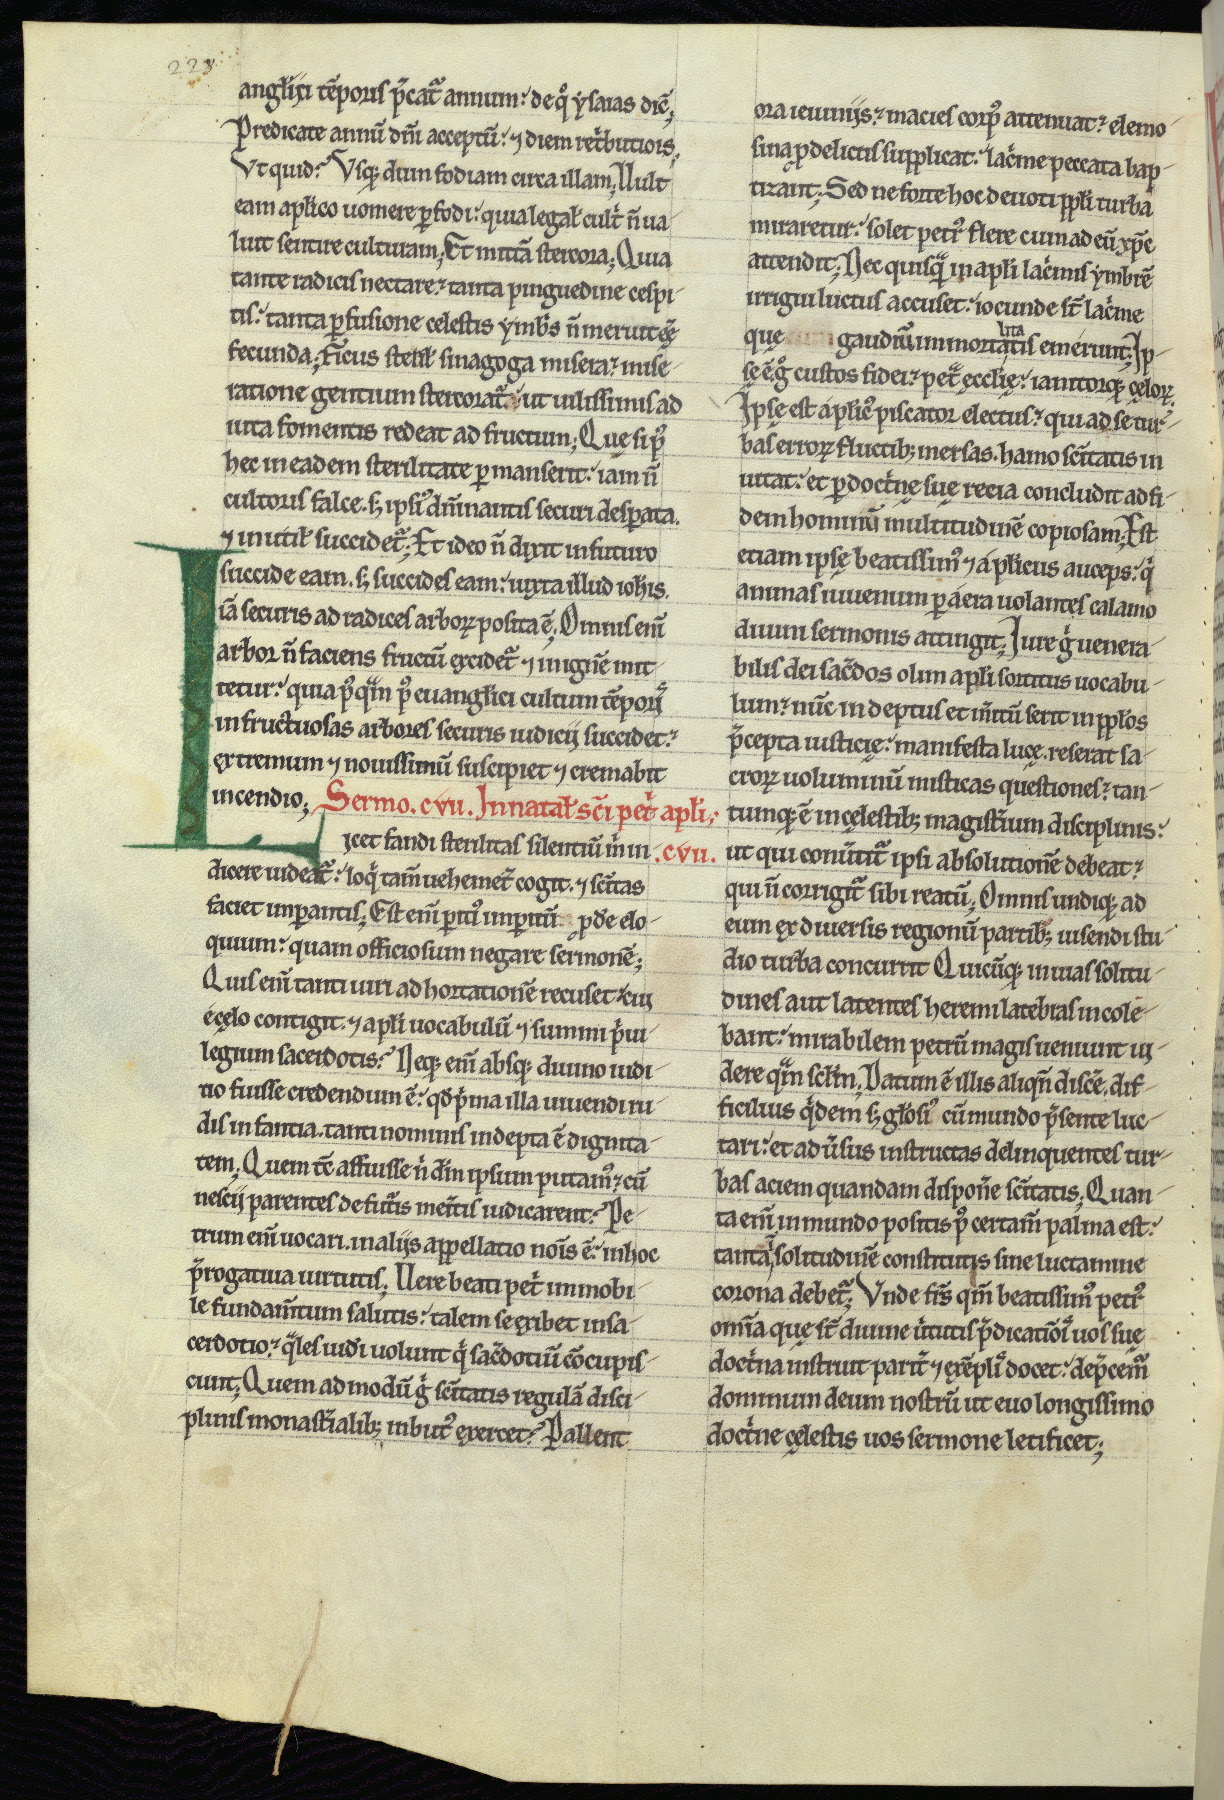 228
angl̄ici tēporis p̄cat᷑ annum: de qͦ ysaias dic̄;
Predicate annū dn̄i acceptū: ⁊ diem ret͛butiois,
Vt quid? Vsq; dum fodiam circa illam; Uult
eam apl̄ico uomere ꝑfodi: quia legal̄ cult͛ n̄ ua-
luit sentire culturam; Et mittā stercora; Quia
tante radicis nectare: tanta pinguedine cespi-
tis: tanta ꝑfusione celestis ymb͛s n̄ meruit eē
fecunda; Ficus steril̄ sinagoga misera: mise-
ratione gentium stercorat᷑ ut uilissimis ad
uita fomentis redeat ad fructum; Que si pꝰ
hec in eadem sterilitate ꝑmanserit: iam n̄
cultoris falce. ꝫ ipsiꝰ dn̄inantis securi desꝑata.
⁊ inutil̄ succidet᷑; Et ideo n̄ dixit in futuro
succide eam. ꝫ succides eam: iuxta illud ioh̄is.
iā securis ad radices arborꝝ posita ē; Omnis eni̅
arbor n̄ faciens fructū excidet᷑ ⁊ in ignē mit-
tetur: quia pꝰ qͣm pꝰ euangl̄ici cultum tēporꝭ
infructuosas arbores securis iudicij succidet:
extremum ⁊ nouissimū suscipiet ⁊ cremabit
incendio; Sermo .cvii. In natal̄ sc̄i pet͛ apl̄i;
Licet fandi sterilitas silentiū m͛ in .cvii.
dicere uideat᷑: loq͛ tam̄ uehemet͛ cogit. ⁊ sc̄itas
faciet imꝑantis; Est eni̅ ꝑitiꝰ imꝑitū pdē elo-
quium: quam officiosum negare sermonē;
Quis eni̅ tanti uiri adhortationē recuset: cui
e celo contigit. ⁊ apl̄i uocabulū ⁊ summi p͛ui-
legium sacerdotis? Neq; eni̅ absq; diuino iudi-
tio fuisse credendum ē: qd̄ p͛ma illa uiuendi ru-
dis infantia. tanti nominis indepta ē dignita-
tem; Quem tc̄ affuisse n͛ dn̄m ipsum putamꝰ: cū
nescij parentes de fut͛is merītis iudicarent? Pe-
trum eni̅ uocari. in alijs appellatio nōis ē: in hoc
p̄rogatiua uirtutis; Uere beati pet͛ immobi-
le fundam̄tum salutis: talem se exibet in sa-
cerdotio: qͣles iudi uolunt q͛ sac̄dotiū cōcupis-
cunt; Quem admodū g͛ sc̄itatis regulā disci-
plinis monast͛ialibꝫ inbutꝰ exercet? Pallent
ora ieiunijs: macies corpꝰ attenuat: elemo-
sina ꝓ delictis supplicat: lac͛me peccata bap-
tizant; Sed ne forte hoc deuoti ppl̄i turba
miraretur: solet petrꝰ flere cum ad eū xp̄c
attendit; Nec quisqͣ in apl̄i lac͛imis ymbrē
irrigui luctus accuset: iocunde st̄ lac͛me
que gaudiū immortalitatis emerunt; Ip-
se ē g͛ custos fidei: pet͛ ecclie: ianitorq; celorꝝ.
Ipse est apl̄icꝰ piscator electus: qui ad se tur-
bas errorꝝ fluctibꝫ mersas. hamo sc̄itatis in
uitat: et ꝑ doct͛ne sue recia concludit ad fi-
dem hominū multitudinē copiosam; Est
etiam ipse beatissimꝰ ⁊ apl̄icus auceps: q͛
animas iuuenum ꝑ aera uolantes calamo
diuini sermonis attingit; Iure g͛ uenera-
bilis dei sac͛dos olim apl̄i sortitus uocabu-
lum: nūc indeptus et m͛itū serit in ppl̄os
p̄cepta iusticie: manifesta luce. reserat sa-
crorꝝ uoluminū misticas questiones: tan-
tumq; ē in celestibꝫ magist͛ium disciplinis:
ut qui conu͛tit᷑ ipsi absolutionē debeat:
qui n̄ corrigit᷑ sibi reatū; Omnis undiq; ad
eum ex diuersis regionū partibꝫ uisendi stu-
dio turba concurrit Quicūq; inuias solitu-
dines aut latentes heremi latebras incole-
bant: mirabilem petrū magis ueniunt ui-
dere qͣm sc̄lm; Datum ē illis aliqn̄ disce͛. dif-
ficilius q͛dem ꝫ gl̄osiꝰ cū mundo p̄sente luc-
tari: et adu͛sus instructas delinquentes tur-
bas aciem quandam dispone͛ sc̄itatis; Quan-
ta eni̅ in mundo positis pꝰ certam̄ palma est:
tanta solitudinē constitutis sine luctamine
corona debet᷑; Vnde fr̄s qm̄ beatissimꝰ petrꝰ
omīa que st̄ diuine u͛tutis p̄dicatiōi uos sue
doct͛na instruit parit͛ ⁊ exēpli docet: dep̄cemꝰ
dominum deum nostrū ut euo longissimo
doct͛ne celestis uos sermone letificet;